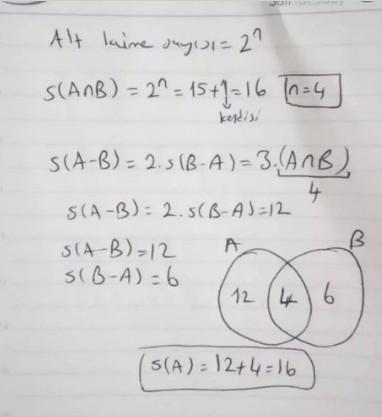 Alt küme sayısı = 2ⁿ
s(A∩B) = 2ⁿ = 15+1 = 16 n=4
kendisi
s(A-B) = 2.s(B-A) = 3.(A∩B)
4
s(A-B) = 2.s(B-A) = 12
s(A-B) = 12
s(B-A) = 6
A B
12 4 6
s(A) = 12+4 = 16